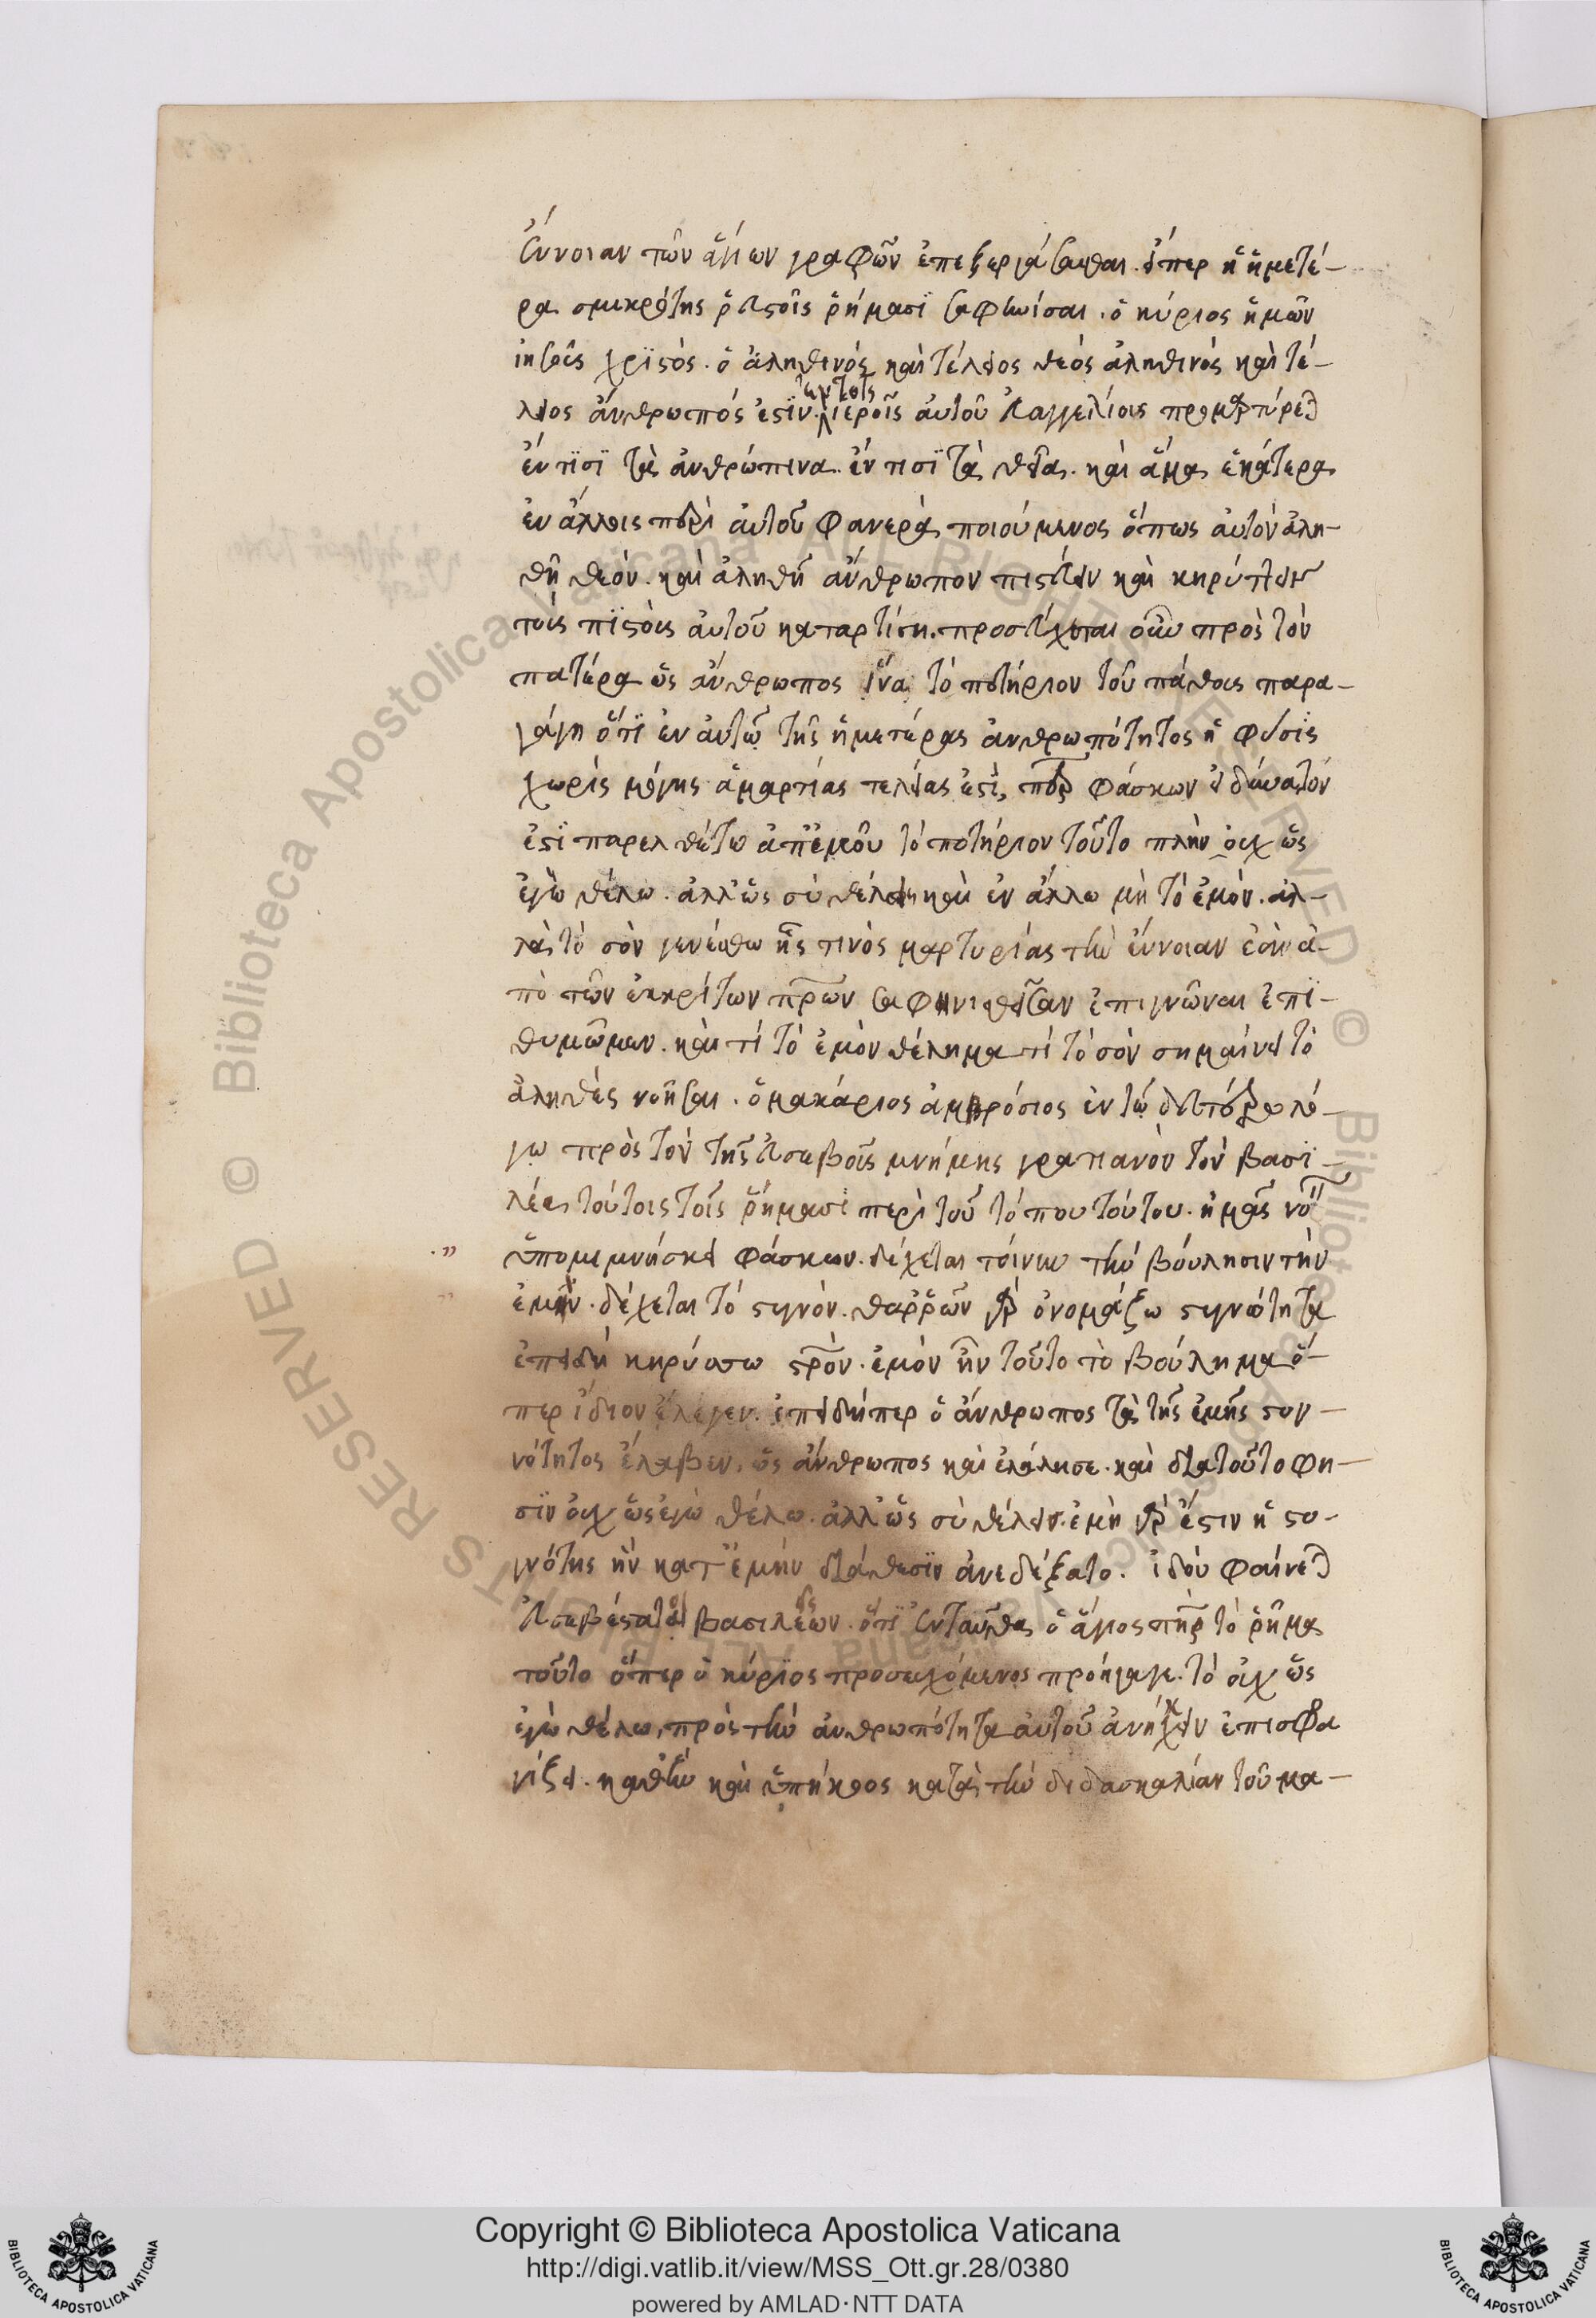 ἔννοιαν τῶν ἁγίων γραφῶν ἐπεξεργάσασθαι. εἴπερ ἡ ἡμετέ-
ρα σμικρότης εὐκτοῖς ῥήμασι σαφηνίσαι. ὁ κύριος ἡμῶν
ἰησοῦς χριστὸς. ὁ ἀληθινός καὶ τέλειος θεός ἀληθινός καὶ τέ-
λειος ἄνθρωπός ἐστϊν. ἐν τοῖς ἱεροῖς αὐτοῦ εὐαγγελίοις προμαρτύρεται
ἐν τϊσϊ τὰ ἀνθρώπινα. ἐν τισϊ τὰ θεῖα. καὶ ἅμα ἑκάτερα
ἐν ἄλλοις περὶ αὐτοῦ φανερὰ ποιούμενος ὅπως αὐτὸν ἀλη-
θῆ θεόν. καὶ ἀληθῆ ἄνθρωπον πιστεύειν καὶ κηρύττειν
τοὺς πϊστοὺς αὐτοῦ καταρτίση. προσεύχεται οὖν πρὸς τὸν
πατέρα ὡς ἄνθρωπος ἵνα τὸ ποτήριον τοῦ πάθους παρα-
γάγη ὅτϊ ἐν αὐτῶ τῆς ἡμετέρας ἀνθρωπότητος ἡ φύσϊς
χωρίς μόνης ἁμαρτίας τελείας ἐστὶ, πάτερ φάσκων εἰ δύνατόν
ἐστϊ παρελθέτω ἀπ' ἐμοῦ τὸ ποτήριον τοῦτο πλὴν οὐχ ὡς
ἐγὼ θέλω. ἀλλ' ὡς σὺ θέλεις καὶ ἐν ἄλλω μὴ τὸ ἐμόν. ἀλ-
λὰ τὸ σὸν γενέσθω ἧς τινὸς μαρτυρίας τὴν ἔννοιαν ἐὰν ἀ-
πὸ τῶν ἐκκρίτων πατέρων σαφηνισθεῖσαν ἐπιγνῶναι ἐπϊ-
θυμῶμεν. καὶ τί τὸ ἐμὸν θέλημα τί τὸ σὸν σημαίνει τὸ
ἀληθὲς νοῆσαι. ὁ μακάριος ἀμβρόσιος ἐν τῶ δευτέρω λό-
γω πρὸς τὸν τῆς εὐσεβοῦς μνήμης γρατιανὸν τὸν βασϊ-
λέα τούτοις τοῖς ῥήμασϊ περὶ τοῦ τόπου τούτου. ἡμᾶς
ὑπομιμνήσκει φάσκων. δέχεται τοίνυν τὴν βούλησιν τὴν
ἐμήν. δέχεται τὸ στυγνόν. θαῤῥῶν γὰρ ὀνομάζω στυγνότητα
ἐπειδὴ κηρύσσω σταυρόν. ἐμὸν ἦν τοῦτο τὸ βούλημα ὅ-
περ ἴδιον ἔλεγεν. ἐπειδήπερ ὁ ἄνθρωπος τὰ τῆς ἐμῆς στυγ-
νότητος ἔλαβεν, ὡς ἄνθρωπος καὶ ἐλάλησε. καὶ διὰ τοῦτο φη-
σϊν οὐχ ὡς ἐγὼ θέλω. ἀλλ' ὡς σὺ θέλεις. ἐμὴ γὰρ ἔστιν ἡ στυ-
γνότης ἣν κατ' ἐμὴν διάθεσϊν ἀνεδέξατο. ἰδοὺ φαίνεται
εὐσεβέστατοι βασιλέων. ὅτϊ ἐνταῦθα ὁ ἅγιος πατὴρ τὸ ῥῆμα
τοῦτο ὅπερ ὁ κύρϊος προσευχόμενος προήγαγε. τὸ οὐχ ὡς
ἐγὼ θέλω, πρὸς τὴν ἀνθρωπότητα αὐτοῦ ἀνήκειν ἐπισφρα
γίζει. καθ' ἣν καὶ ὑπήκοος κατὰ τὴν διδασκαλίαν τοῦ μα-
Copyright © Biblioteca Apostolica Vaticana
http://digi.vatlib.it/view/MSS_Ott.gr.28/0380
powered by AMLAD·NTT DATA